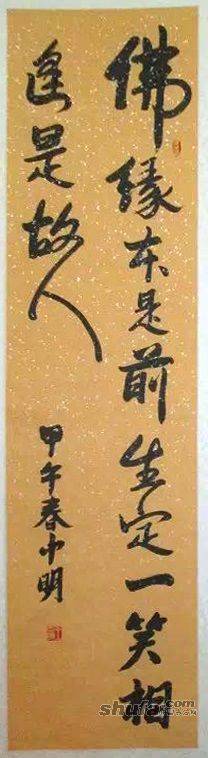 佛缘本是前生定一笑相
逢是故人
甲午春小明
shufa.com